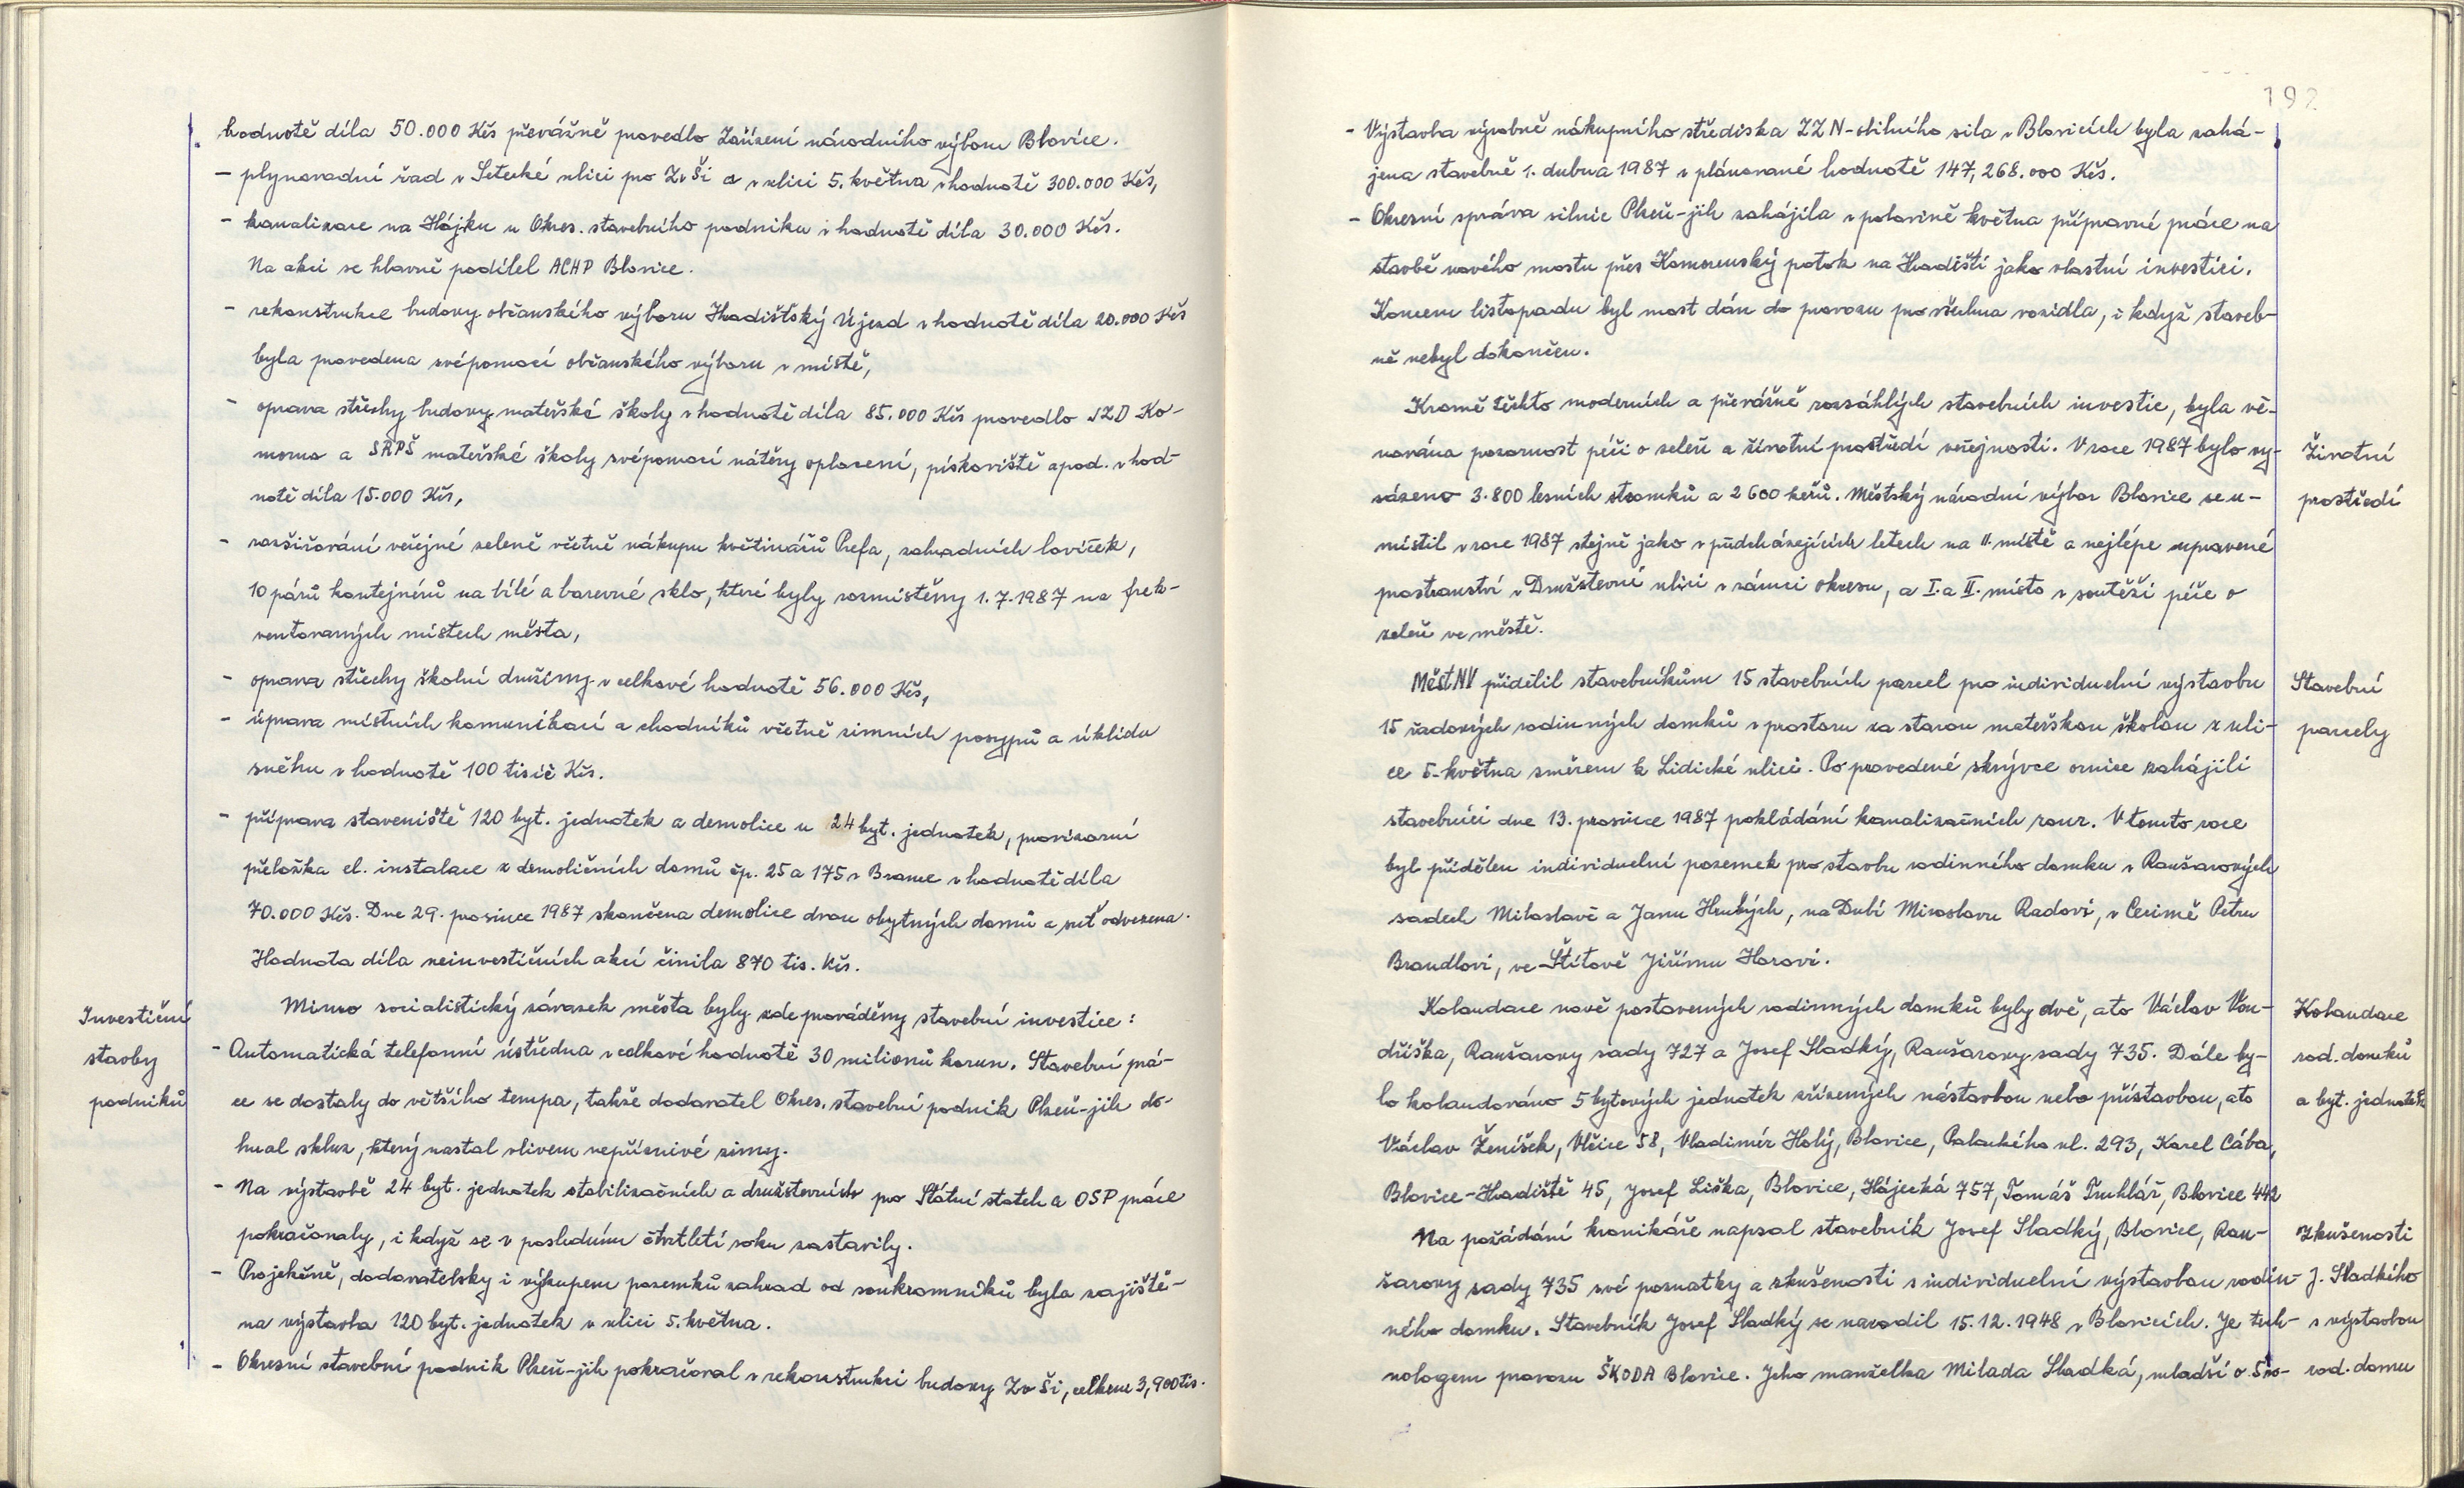 hodnotě díla 50.000 Kčs převážně provedlo Zařízení národního výboru Blovice.
- plynovodní řad v Setecké ulici pro ZvŠi a v ulici 5. května v hodnotě 300.000 Kčs,
- kanalizace na Hájku u Okres. stavebního podniku v hodnotě díla 30.000 Kčs.
Na akci se hlavně podílel ACHP Blovice.
- rekonstrukce budovy občanského výboru Hradišťský Újezd v hodnotě díla 20.000 Kčs
byla provedena svépomocí občanského výboru v místě,
- oprava střechy budovy mateřské školy v hodnotě díla 85.000 Kčs provedlo JZD Ko-
morno a SRPŠ mateřské školy svépomocí nátěry oplocení, pískoviště apod. v hod-
notě díla 15.000 Kčs,
- rozšiřování veřejné zeleně včetně nákupu květináčů Prefa, zahradních laviček,
10 párů kontejnérů na bílé a barevné sklo, které byly rozmístěny 1.7.1987 na frek-
ventovaných místech města,
- oprava střechy školní družiny v celkové hodnotě 56.000 Kčs,
- úprava místních komunikací a chodníků včetně zimních posypů a úklidu
sněhu v hodnotě 100 tisíc Kčs.
- příprava staveniště 120 byt. jednotek a demolice u 24 byt. jednotek, provizorní
přeložka el. instalace z demoličních domů čp. 25 a 175 v Brance v hodnotě díla
70.000 Kčs. Dne 29. prosince 1987 skončena demolice dvou obytných domů a suť odvezena.
Hodnota díla neinvestičních akcí činila 870 tis. Kčs.
Investiční
stavby
podniků
Mimo socialistický závazek města byly zde prováděny stavební investice:
- Automatická telefonní ústředna v celkové hodnotě 30 milionů korun. Stavební prá-
ce se dostaly do většího tempa, takže dodavatel Okres. stavební podnik Plzeň-jih do-
hnal skluz, který nastal vlivem nepříznivé zimy.
- Na výstavbě 24 byt. jednotek stabilizačních a družstevních pro Státní statek a OSP práce
pokračovaly, i když se v posledním čtvrtletí roku zastavily.
- Projekčně, dodavatelsky i výkupem pozemků zahrad od soukromníků byla zajiště-
na výstavba 120 byt. jednotek v ulici 5. května.
- Okresní stavební podnik Plzeň-jih pokračoval v rekonstrukci budovy Zv Ši, celkem 3,900 tis.
192
- Výstavba výrobně nákupního střediska ZZN-obilního sila v Blovicích byla zahá-
jena stavebně 1. dubna 1987 v plánované hodnotě 147,268.000 Kčs.
- Okresní správa silnic Plzeň-jih zahájila v polovině května přípravné práce na
stavbě nového mostu přes Komorenský potok na Hradišti jako vlastní investici.
Koncem listopadu byl most dán do provozu pro všechna vozidla, i když staveb-
ně nebyl dokončen.
Kromě těchto moderních a převážně rozsáhlých stavebních investic, byla vě-
nována pozornost péči o zeleň a životní prostředí veřejnosti. V roce 1987 bylo vy-
sázeno 3.800 lesních stromků a 2600 keřů. Městský národní výbor Blovice se u-
místil v roce 1987 stejně jako v předcházejících letech na II. místě a nejlépe upravené
prostranství v Družstevní ulici v rámci okresu, a I. a II. místo v soutěži péče o
zeleň ve městě.
Životní
prostředí
MěstNV přidělil stavebníkům 15 stavebních parcel pro individuelní výstavbu
15 řadových rodinných domků v prostoru za starou mateřskou školou z uli-
ce 5. května směrem k Lidické ulici. Po provedené skrývce ornice zahájili
stavebníci dne 13. prosince 1987 pokládání kanalizačních rour. V tomto roce
byl přidělen individuelní pozemek pro stavbu rodinného domku v Raušarových
sadech Miloslavě a Janu Hrubých, na Dubí Miroslavu Radovi, v Cecimě Petru
Brandlovi, ve Štítově Jiřímu Horovi.
Stavební
parcely
Kolaudace nově postavených rodinných domků byly dvě, a to Václav Von-
dřiška, Raušarovy sady 727 a Josef Sladký, Raušarovy sady 735. Dále by-
lo kolaudováno 5 bytových jednotek zřízených nástavbou nebo přístavbou, a to
Václav Ženíšek, Vlčice 58, Vladimír Holý, Blovice, Palackého ul. 293, Karel Cába,
Blovice-Hradiště 45, Josef Liška, Blovice, Hájecká 757, Tomáš Truhlář, Blovice 442
Kolaudace
rod. domků
a byt. jednotek
Na požádání kronikáře napsal stavebník Josef Sladký, Blovice, Rau-
šarovy sady 735 své poznatky a zkušenosti s individuelní výstavbou rodin-
ného domku. Stavebník Josef Sladký se narodil 15.12.1948 v Blovicích. Je tech-
nologem provozu ŠKODA Blovice. Jeho manželka Milada Sladká, mladší o 5 ro-
Zkušenosti
J. Sladkého
s výstavbou
rod. domu